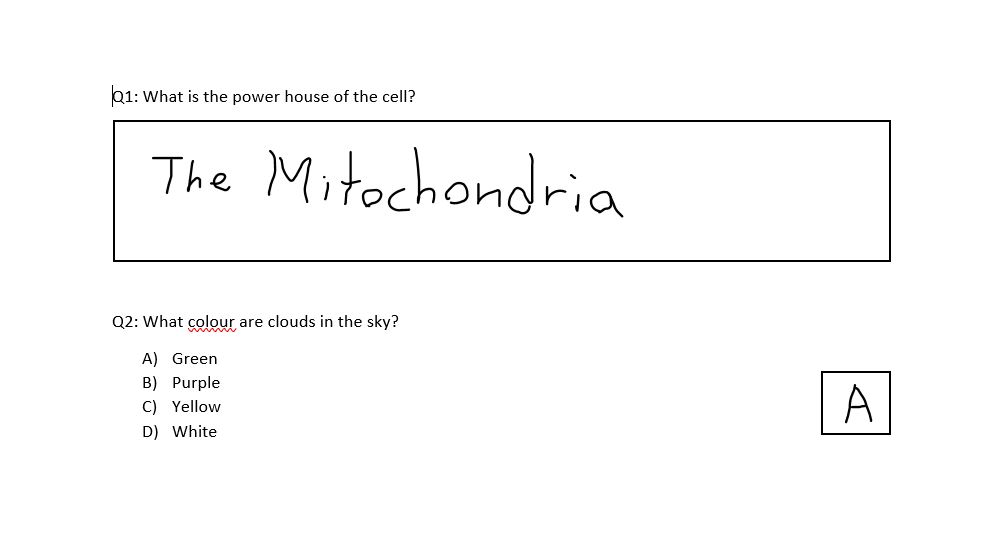 Q1: What is the power house of the cell?
The Mitochondria
Q2: What colour are clouds in the sky?
A) Green
B) Purple
C) Yellow
D) White
A